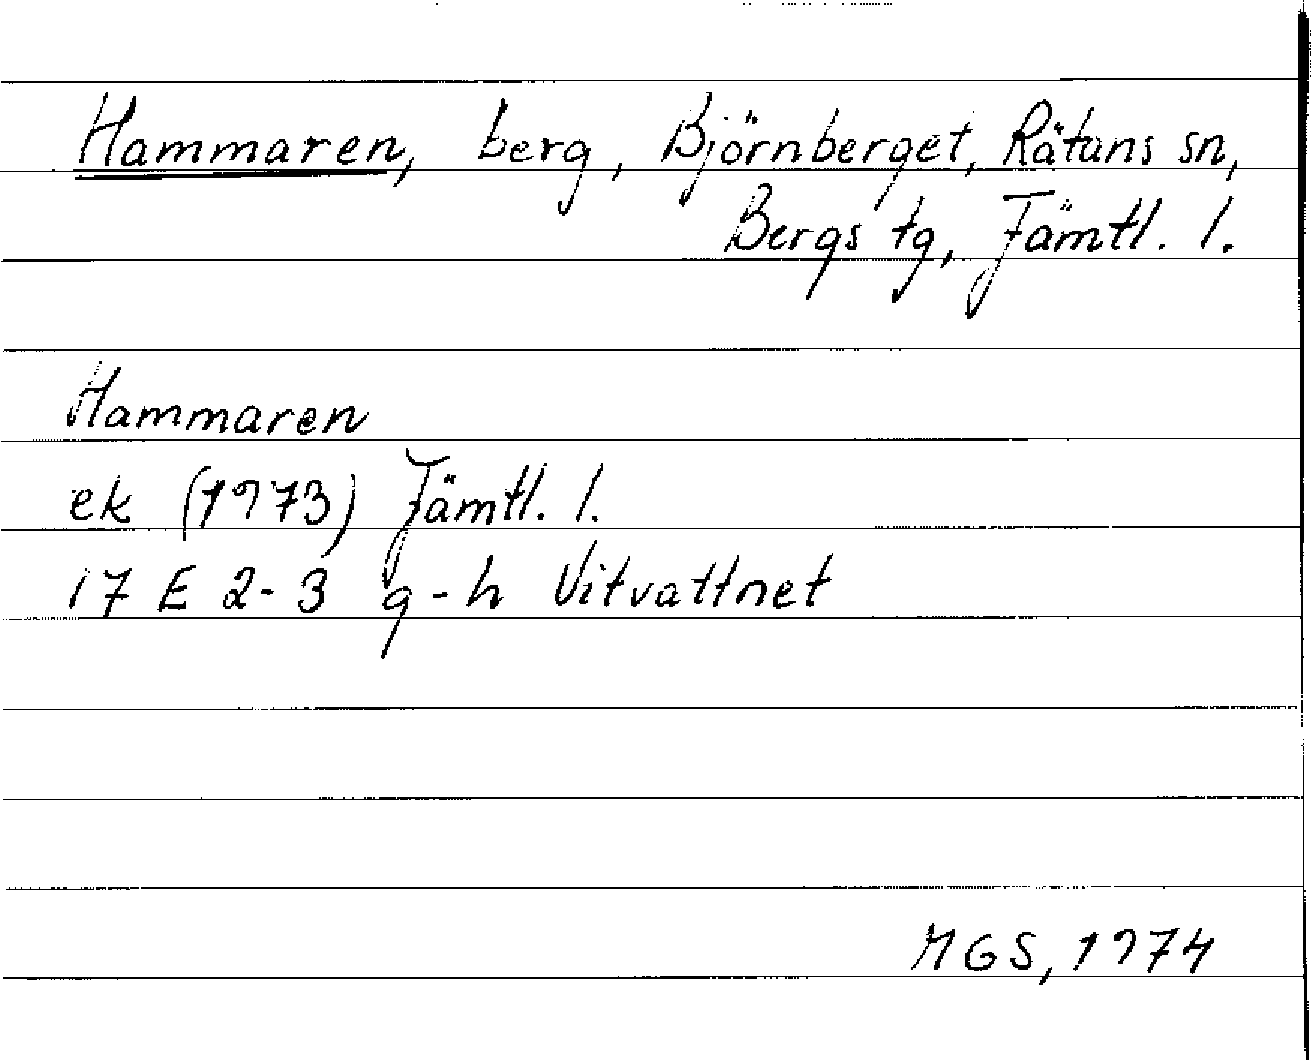 Hammaren, berg, Björnberget, Rätans sn,
Bergs tg, Jämtl. l.
Hammaren
ek (1973) Jämtl. l.
17 E 2-3 g-h Vitvattnet
MGS, 1974